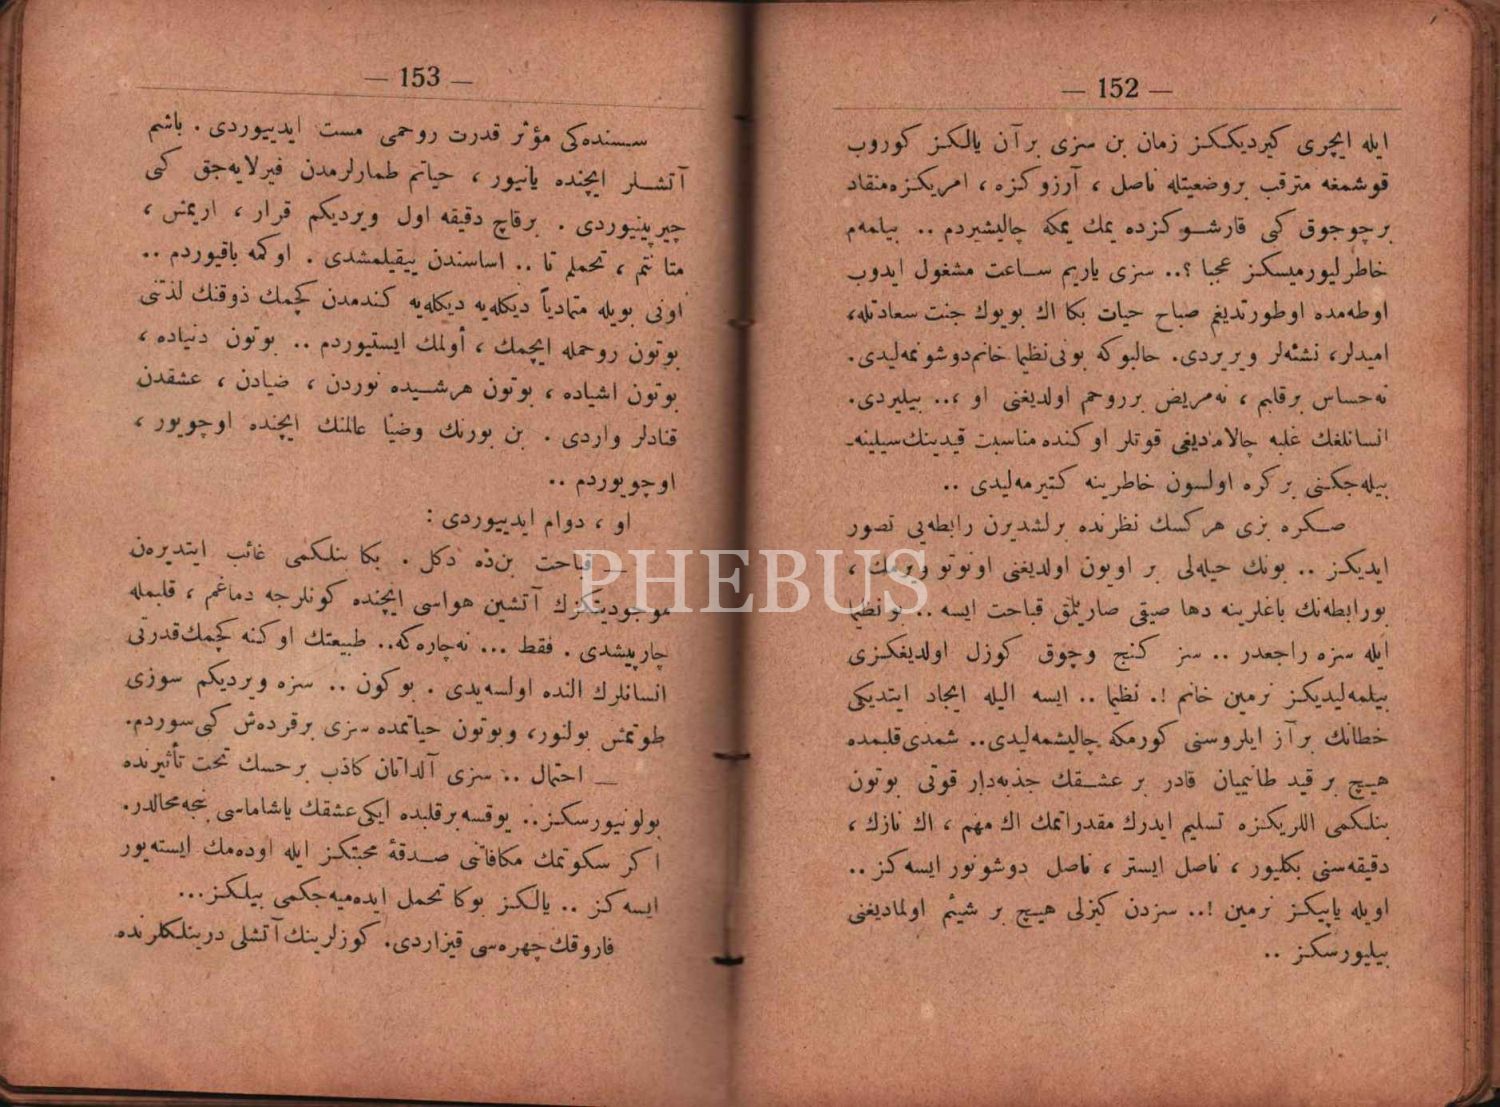 — 152 —
ایله ایچری کیردیککز زمان بن سزی بر آن یالکز کوروب
قوشمغه مترقب بروضعیتله ناصل ، آرزوکزه ، امریکزه منقاد
برچوجوق کی قارشوکزده یمك یمکه چالیشیردم .. بیلمه‌م
خاطرلیورمیسکز عجبا ؟.. سزی یاریم ساعت مشغول ایدوب
اوطه‌مده اوطورتدیغم صباح حیات بکا اك بویوك جنت سعادتله،
امیدلر، نشئه‌لر ویریردی. حالبوکه بونی نظیما خانم دوشونمه‌لیدی.
نه‌حساس برقلبم ، نه‌مریض برروحم اولدیغنی او ،.. بیلیردی.
انسانلغك غلبه چالامادیغی قوتلر اوکنده مناسبت قیدینك سیلینه‌-
بیله‌جکنی برکره اولسون خاطرینه کتیرمه‌لیدی ..
صکره بزی هرکسك نظرنده برلشدیرن رابطه‌یی تصور
ایدیکز .. بونك حیله‌لی بر اویون اولدیغنی اونوتو ویرمك ،
بورابطه‌نك باغلرینه دها صیقی صاریلمق قباحت ایسه .. بو نظیما
ایله سزه راجعدر .. سز کنج وچوق کوزل اولدیغکزی
بیلمه‌لیدیکز نرمین خانم !. نظیما .. ایسه الیله ایجاد ایتدیکی
خطانك برآز ایلروسنی کورمکه چالیشمه‌لیدی.. شمدی قلبمده
هیچ بر قید طانیمیان قادر بر عشقك جذبه‌دار قوتی بوتون
بنلکمی اللریکزه تسلیم ایدرك مقدراتمك اك مهم ، اك نازك ،
دقیقه‌سنی بکلیور ، ناصل ایستر ، ناصل دوشونور ایسه‌کز ..
اویله یاپیکز نرمین !.. سزدن کیزلی هیچ بر شیئم اولمادیغنی
بیلیورسکز ..
— 153 —
سسنده‌کی مؤثر قدرت روحمی مست ایدییوردی . باشم
آتشلر ایچنده یانیور ، حیاتم طمارلرمدن فیرلایه‌جق کی
چیرپینیوردی . برقاچ دقیقه اول ویردیکم قرار ، اریمش ،
متانتم ، تحملم تا .. اساسندن ییقیلمشدی . اوکمه باقیوردم ..
اونی بویله متمادیاً دیکله‌یه دیکله‌یه کندمدن کچمك ذوقنك لذتنی
بوتون روحمله ایچمك ، أولمك ایستیوردم .. بوتون دنیاده ،
بوتون اشیاده ، بوتون هرشیده نوردن ، ضیادن ، عشقدن
قنادلر واردی . بن بورنك وضیا عالمنك ایچنده اوچویور ،
اوچویوردم ..
او ، دوام ایدییوردی :
— قباحت بن‌ده دکل . بکا بنلکمی غائب ایتدیره‌ن
موجودیتکزك آتشین هواسی ایچنده کونلرجه دماغم ، قلبمله
چارپیشدی . فقط ... نه‌چاره‌که.. طبیعتك اوکنه کچمك قدرتی
انسانلرك النده اولسه‌یدی . بوکون .. سزه ویردیکم سوزی
طوتمش بولنور، وبوتون حیاتمده سزی برقرده‌ش کی سوردم.
— احتمال .. سزی آلداتان کاذب برحسك تحت تأثیرنده
بولونیورسکز.. یوقسه برقلبده ایکی عشقك یاشاماسی بنجه محالدر.
اکر سکوتمك مکافاتنی صدقۀ محبتکز ایله اوده‌مك ایسته‌یور
ایسه‌کز .. یالکز بوکا تحمل ایده‌میه‌جکمی بیلکز...
فاروقك چهره‌سی قیزاردی. کوزلرینك آتشلی درینلکلرنده
PHEBUS